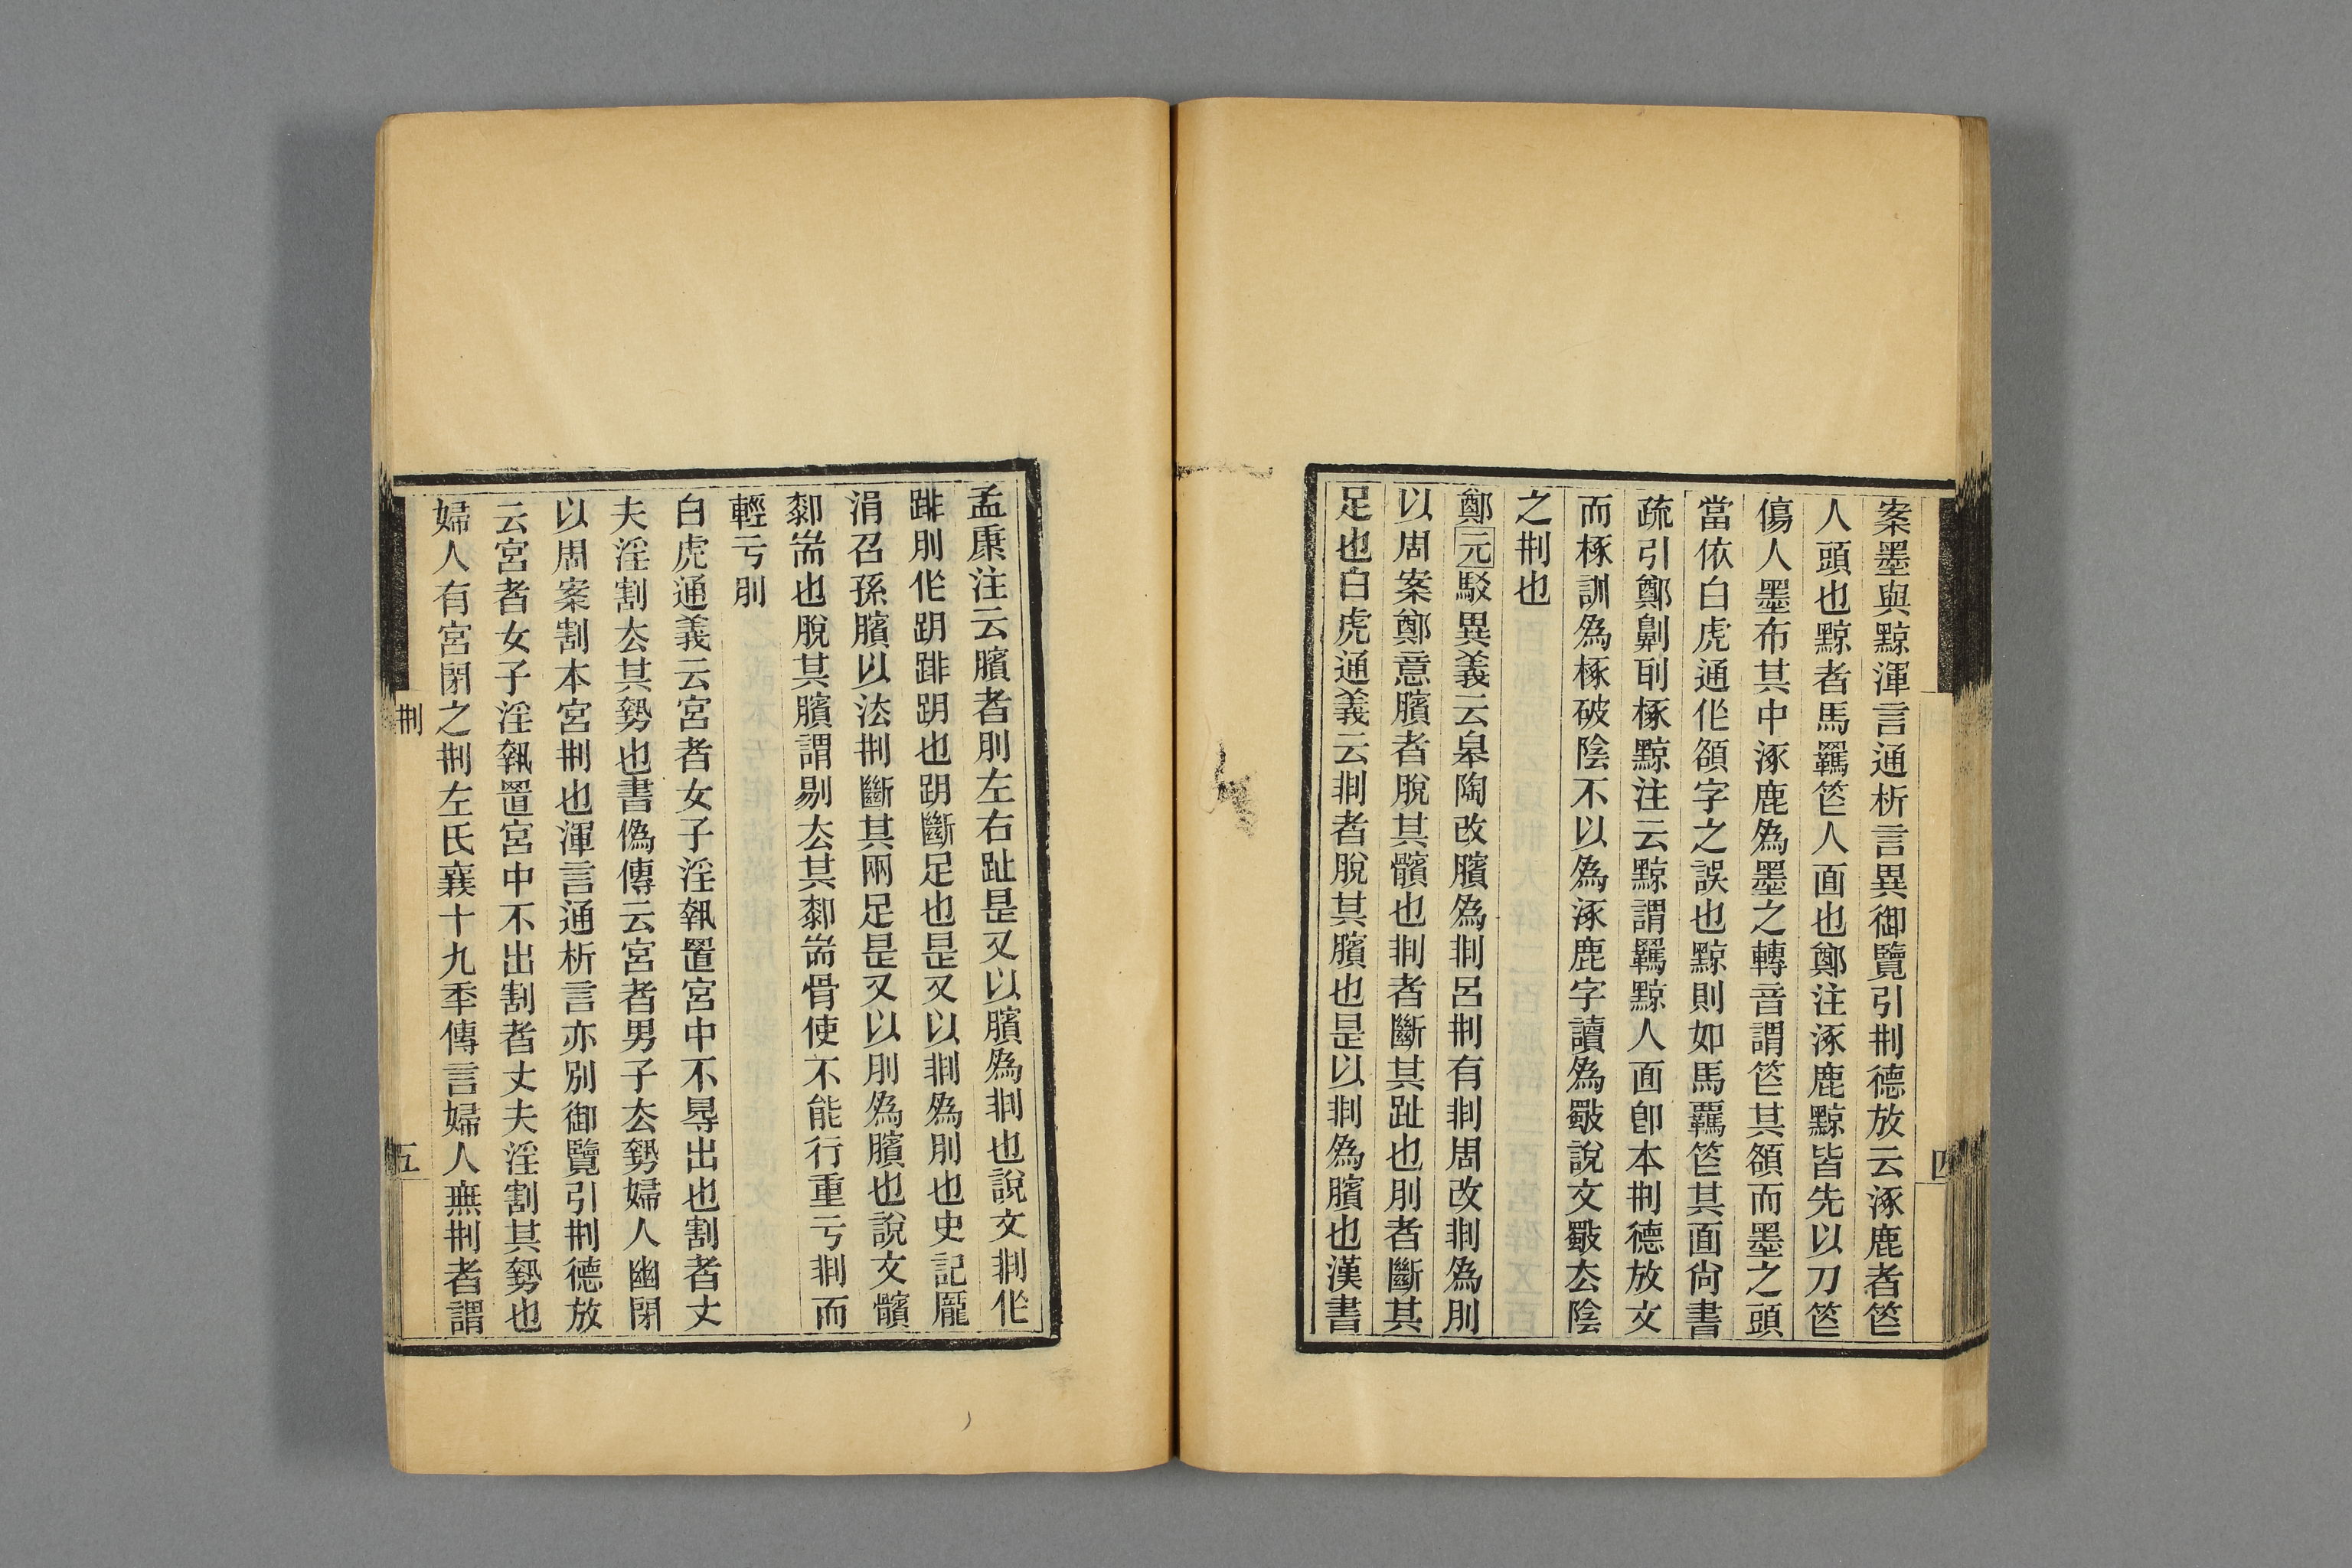 案墨與黥渾言通析言異御覽引𠛬德放云涿鹿者笮
人頭也黥者馬羈笮人面也鄭注涿鹿黥皆先以刀笮
傷人墨布其中涿鹿爲墨之轉音謂笮其額而墨之頭
當依白虎通作額字之誤也黥則如馬羈笮其面尙書
疏引鄭劓刵椓黥注云黥謂羈黥人面卽本𠛬德放文
而椓訓爲椓破陰不以爲涿鹿字讀爲斀說文斀去陰
之𠛬也
鄭元駁異義云皋陶改臏爲剕呂𠛬有剕周改剕爲刖
以周案鄭意臏者脫其髕也剕者斷其趾也刖者斷其
足也白虎通義云剕者脫其臏也是以剕爲臏也漢書
四
孟康注云臏者刖左右趾是又以臏爲剕也說文剕作
跳刖作跀跳跀也跀斷足也是又以剕爲刖也史記龐
涓召孫臏以法𠛬斷其兩足是又以刖爲臏也說文髕
厀耑也脫其臏謂剔去其厀耑骨使不能行重亏剕而
輕亏刖
白虎通義云宮者女子淫執置宮中不㝵出也割者丈
夫淫割去其勢也書僞傳云宮者男子去勢婦人幽閉
以周案割本宮𠛬也渾言通析言亦別御覽引𠛬德放
云宮者女子淫執置宮中不出割者丈夫淫割其勢也
婦人有宮閉之𠛬左氏襄十九秊傳言婦人無𠛬者謂
𠛬
五